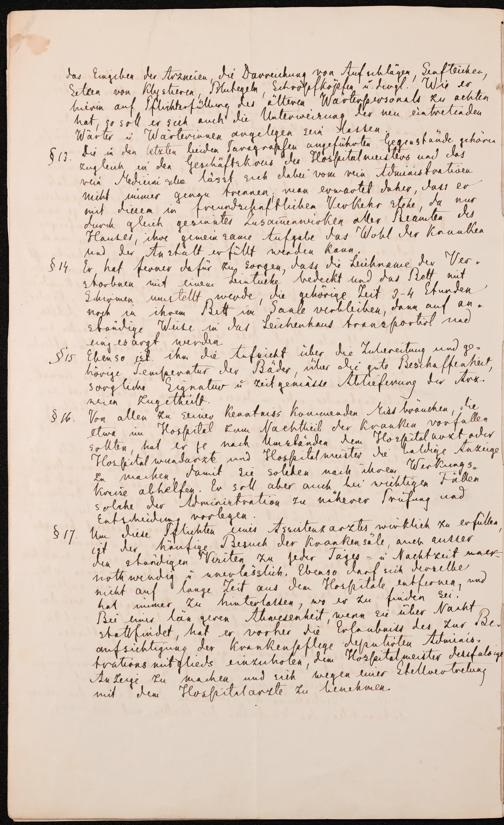 das Eingeben der Arzneien, die Darreichung von Aufschlägen, Senfteichen,
Setzen von Klystieren, Blutegeln, Schröpfköpfen u. dergl. Wie er
hierin auf Pflichterfüllung des älteren Wärterpersonals zu achten
hat, so soll er sich auch die Unterweisung der neu eintretenden
Wärter u Wärterinnen angelegen sein lassen.
§ 13. Die in den letzten beiden Paragrafen angeführten Gegenstände gehören
zugleich in den Geschäftskreis des Hospitalmeisters und das
rein Medicinische lässt sich dabei vom rein Administrativen
nicht immer genau trennen; man erwartet daher, dass er
mit diesem in freundschaftlichen Verkehr stehe, da nur
durch gleich gesinntes Zusammenwirken aller Beamten des
Hauses, ihre gemeinsame Aufgabe das Wohl der Kranken
und der Anstalt erfüllt werden kann.
§ 14. Er hat ferner dafür zu sorgen, dass die Leichname der Ver-
storbenen mit einem Leintuche bedeckt und das Bett mit
Schirmen umstellt werde, die gehörige Zeit 3-4 Stunden
noch in ihrem Bett im Saale verbleiben, dann auf an-
ständige Weise in das Leichenhaus transportirt und
eingesargt werden.
§ 15 Ebenso ist ihm die Aufsicht über die Zubereitung und ge-
hörige Temperatur der Bäder, über die gute Beschaffenheit,
sorgliche Signatur u zeitgemässe Ablieferung der Arz-
neien zugetheilt.
§ 16. Von allen zu seiner Kenntniss kommenden Missbräuchen, die
etwa im Hospital zum Nachtheil der Kranken vorfallen
sollten, hat er je nach Umständen dem Hospitalarzt oder
Hospitalwundarzte und Hospitalmeister die baldige Anzeige
zu machen, damit sie solchen nach ihrem Wirkungs-
kreise abhelfen. Er soll aber auch bei wichtigen Fällen
solche der Administration zu näherer Prüfung und
Entscheidung vorlegen.
§ 17 Um diese Pflichten eines Assistenzarztes wirklich zu erfüllen,
ist der häufige Besuch der Krankensäle, auch ausser
den ständigen Visiten zu jeder Tages- u Nachtzeit
nothwendig u unerlässlich. Ebenso darf sich derselbe
nicht auf lange Zeit aus dem Hospitale entfernen, und
hat immer zu hinterlassen, wo er zu finden sei.
Bei einer längeren Abwesenheit, wenn sie über Nacht
stattfindet, hat er vorher die Erlaubniss des zur Be-
aufsichtigung der Krankenpflege deputirten Adminis-
trationsmitglieds einzuholen, dem Hospitalmeister dessfalsige
Anzeige zu machen und sich wegen einer Stellvertretung
mit dem Hospitalarzte zu benehmen.